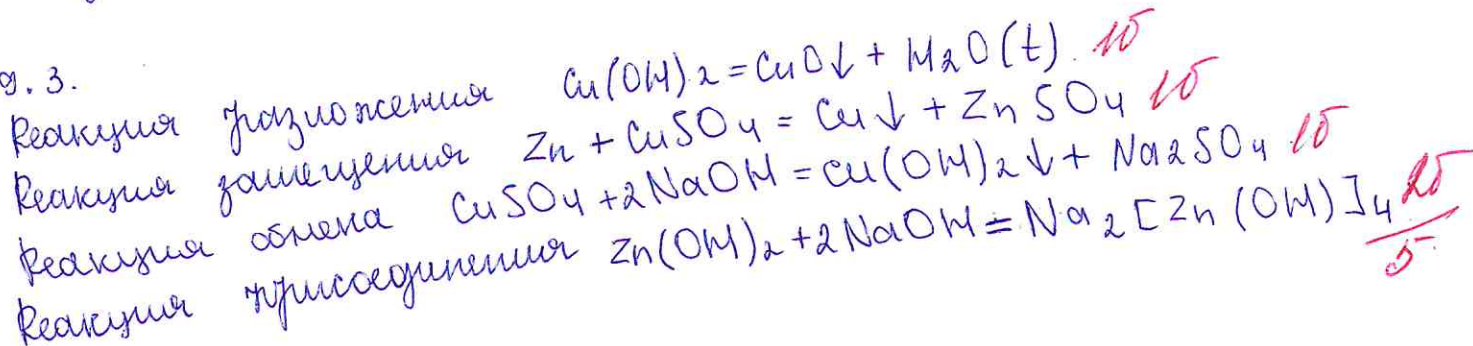 9.3.
Реакция разложения Cu(OH)2 = CuO↓ + H2O(t) 1б
Реакция замещения Zn + CuSO4 = Cu↓ + ZnSO4 1б
Реакция обмена CuSO4 + 2NaOH = Cu(OH)2↓ + Na2SO4 1б
Реакция присоединения Zn(OH)2 + 2NaOH = Na2[Zn(OH)]4 2б
5